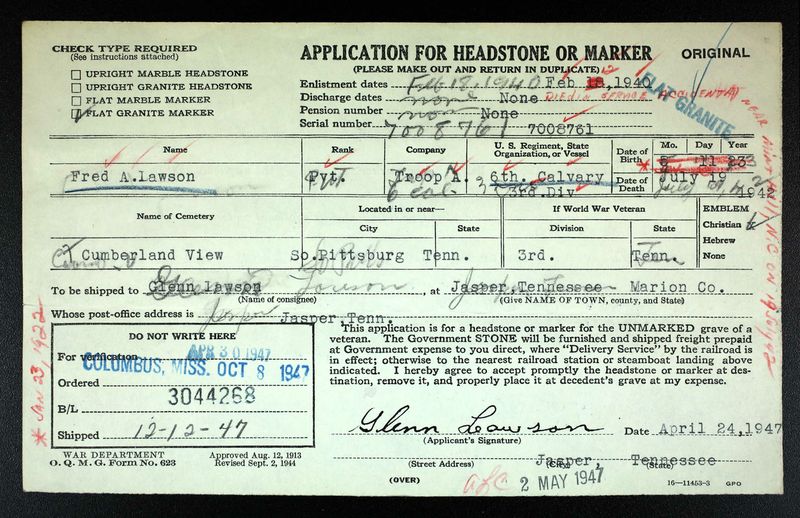 CHECK TYPE REQUIRED
(See instructions attached)
UPRIGHT MARBLE HEADSTONE
UPRIGHT GRANITE HEADSTONE
FLAT MARBLE MARKER
FLAT GRANITE MARKER
APPLICATION FOR HEADSTONE OR MARKER
(PLEASE MAKE OUT AND RETURN IN DUPLICATE)
ORIGINAL
Enlistment dates Feb 18, 1940 Feb 18, 1940
Discharge dates none None DIED IN SERVICE ACCIDENTAL NEAR
Pension number none None
Serial number 7008761 7008761
FLAT GRANITE
Name Rank Company U. S. Regiment, State Organization, or Vessel Date of Birth Mo. Day Year
Fred A.lawson Pvt. Troop A. 6th. Calvary 11 23
3rd.Div Date of Death July 19 1942
Name of Cemetery Located in or near— If World War Veteran EMBLEM
City State Division State
Christian
Hebrew
None
Cumberland View So.Pittsburg Tenn. 3rd. Tenn.
To be shipped to Glenn lawson, at Jasper,Tennessee Marion Co.
(Name of consignee) (Give NAME OF TOWN, county, and State)
Whose post-office address is Jasper Jasper,Tenn.
DO NOT WRITE HERE
For verification APR 30 1947
COLUMBUS, MISS. OCT 8 1947
Ordered
3044268
B/L
Shipped 12-12-47
This application is for a headstone or marker for the UNMARKED grave of a
veteran. The Government STONE will be furnished and shipped freight prepaid
at Government expense to you direct, where "Delivery Service" by the railroad is
in effect; otherwise to the nearest railroad station or steamboat landing above
indicated. I hereby agree to accept promptly the headstone or marker at des-
tination, remove it, and properly place it at decedent's grave at my expense.
Glenn Lawson Date April 24,1947
(Applicant's Signature)
Jasper, Tennessee
(Street Address) (City) (State)
WAR DEPARTMENT
O. Q. M. G. Form No. 623
Approved Aug. 12, 1913
Revised Sept. 2, 1944
(OVER)
2 MAY 1947
16—11453-3 GPO
* JAN 23, 1922